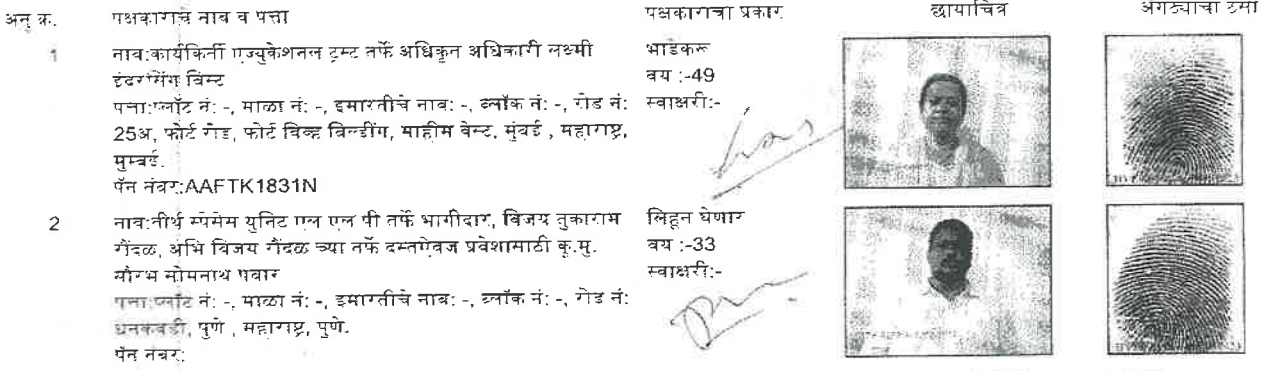 अनु क्र. पक्षकाराचे नाव व पत्ता पक्षकाराचा प्रकार छायाचित्र अंगठ्याचा ठसा
1 नाव:कार्यकिर्ती एज्युकेशनल ट्रस्ट तर्फे अधिकृत अधिकारी लक्ष्मी भाडेकरू
इंदरसिंग बिस्ट वय :-49
पत्ता:प्लॉट नं: -, माळा नं: -, इमारतीचे नाव: -, ब्लॉक नं: -, रोड नं: स्वाक्षरी:-
25अ, फोर्ट रोड, फोर्ट विव्ह बिल्डींग, माहीम वेस्ट, मुंबई , महाराष्ट्र,
मुम्बई.
पॅन नंबर:AAFTK1831N
2 नाव:तीर्थ स्पेसेस युनिट एल एल पी तर्फे भागीदार, विजय तुकाराम लिहून घेणार
रौंदळ, अभि विजय रौंदळ च्या तर्फे दस्तऐवज प्रवेशासाठी कु.मु. वय :-33
सौरभ सोमनाथ पवार स्वाक्षरी:-
पत्ता:प्लॉट नं: -, माळा नं: -, इमारतीचे नाव: -, ब्लॉक नं: -, रोड नं:
धनकवडी, पुणे , महाराष्ट्र, पुणे.
पॅन नंबर: